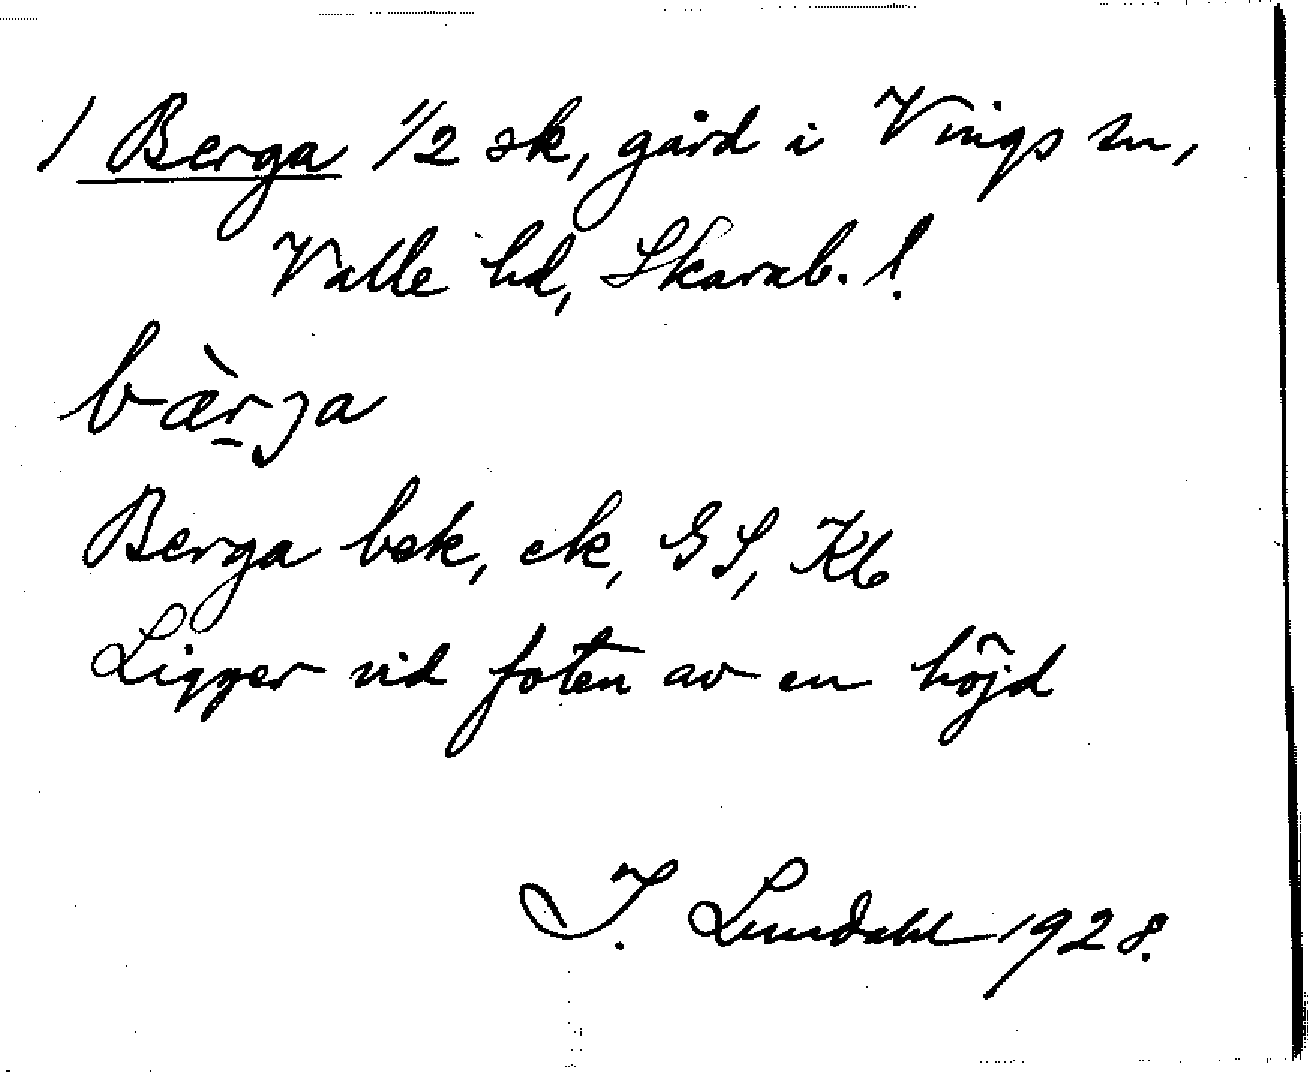 / Berga 1/2 sk, gård i Vings sn,
Valle hd, Skarab. l.
bæ̀r̠ja
Berga bek, ek, GS, Kb
Ligger vid foten av en höjd
I. Lundahl 1928.